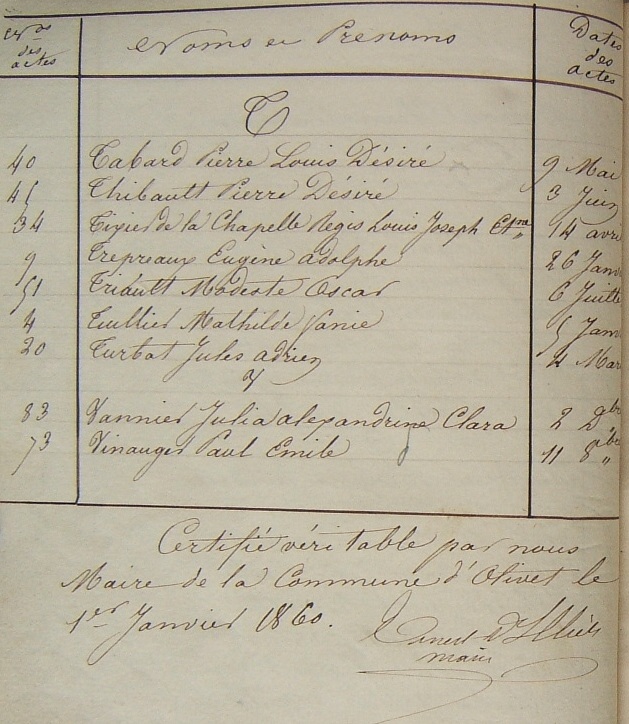 Nos des actes Noms et Prenoms Dates des actes
T
40 Tabard Pierre Louis Désiré 9 Mai
45 Thibault Pierre Désiré 3 Juin
34 Tixier de la Chapelle Regis Louis Joseph Etne 14 avri
9 Trepreaux Eugène adolphe 26 Janv
51 Triault Modeste Oscar 6 Juille
4 Tullier Mathilde 5 Janv
20 Turbat Jules adrien 4 Mar
V
83 Vannier Julia alexandrine Clara 2 Dbre
73 Vinauger Paul Emile 11 8bre
Certifié véritable par nous
Maire de la Commune d'Olivet le
1er Janvier 1860.
Ernest d'Illiers
maire